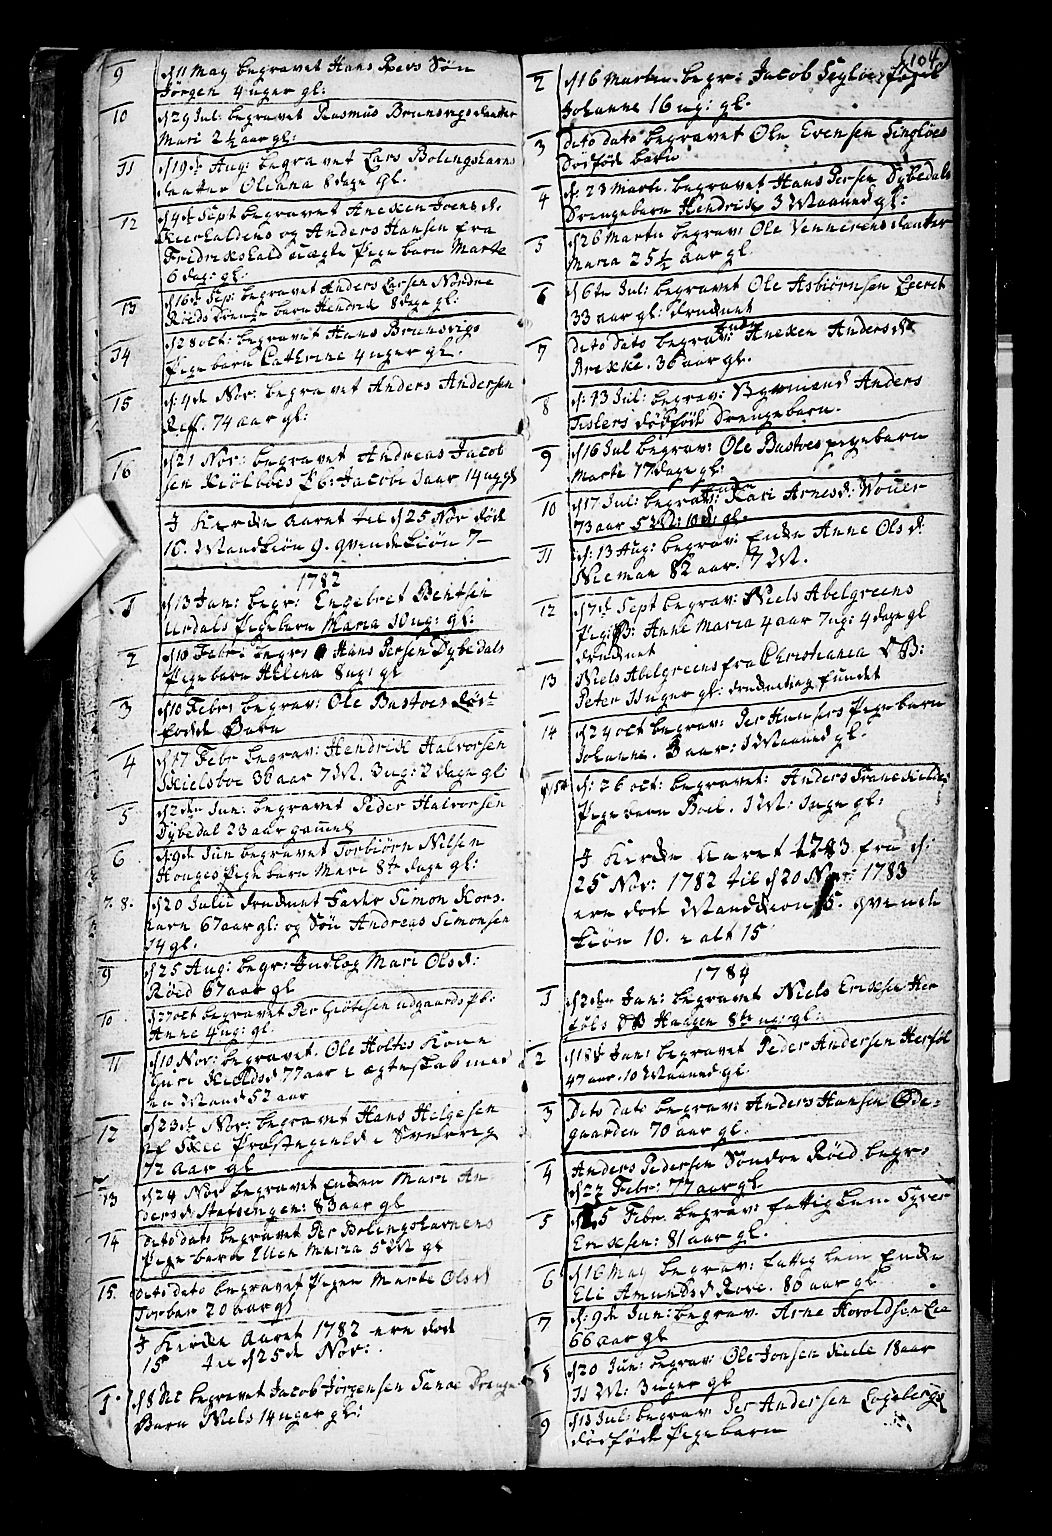 9 d 11 May begravet Hans Røds Søn
Jørgen 4 uger gl:
10 d 29 Jul: begravet Rasmus Brunsvigs daatter
Mari 2 1/2 aar gl:
11 d 19de Aug: begravet Lars Bolingshavns
daatter Olenna 8 dage gl.
12 d 4de Sept begravet Aneken Joensd.
og Anders Hansen fra
Fredrikshald uægte Pige barn Marte
6 dag: gl:
13 d 16de Sep: begravet Anders Larsen Nordre
Røeds Drenge barn Hendrik 8 dage gl:
14 d 28 oct: begravet Hans Brunsvigs
Pige barn Cathrine 4 uger gl.
15 d: 4de Nov: begravet Anders Andersen
Røff. 74 aar gl:
16 d 21 Nov: begravet Andreas Jacob
sen Kiølboes P.b: Jacobe 1 aar 14 ug gl
I Kirke Aaret til d 25 Nov døde
16. Mandkiøn 9. qvindekiøn 7
1782
1 d 13 Jan: begr: Engebret Bentsen
Urdals Pigebarn Maria 10 ug: gl:
2 d 10 Febr: begr: Hans Persen Dybedals
Pige barn Helena 8 ug: gl
3 d 10 Febr: begrav: Ole Bastoes Død
fødde Barn
4 d 17 Febr begrav: Hendrik Halvorsen
Skielsboe 36 aar 7 M. 3 ug: 2 dage gl:
5 d 2den Jun: begravet Peder Halvorsen
Dybedal 23 aar gammel
6 d: 9de Jun begravet Torbiørn Nilsen
Houges Pige barn Mari 8te dage gl:
7. 8. d 20 Julii druknet Fader Simon Kors-
havn 67 aar gl: og Søn Andreas Simonsen
14 gl.
9 d 25 Aug: begr: Indlog Mari Olsd:
Røed 67 aar gl
10 d 27 oct begravet Per Giøtesen udgaards P.b:
Anne 4 ug: gl.
11 d 10 Nov: begravet. Ole Holtes Kone
Guri Kieldsd 77 aar i ægteskab med
en Mand 52 aar
12 d 23de Nov: begravet Hans Helgesen
af Skee Præstegield i Sverrig
72 Aar gl
13 d 24 Nov begravet Enken Mari An-
dersd: Stafsengen: 83 aar gl
14 dito dato begravet Per Bolingshavnens
Pige barn Ellen Maria 5 M gl
15. dito dato begravet Pigen Marte Olsd
Torber 20 aar gl
I Kirke Aaret 1782 ere død
15 til d 25de Nov:
1 d 8 De begravet Jacob Jørgensen Sanne Drenge
Barn Niels 14 uger gl:
104
2 d 16 Marti: begr: Jacob Sigløes pige
Johanne 16 ug: gl.
3 dito dato begravet Ole Evensen Singløes
Dødfød barn
4 d. 23 Marti. begravet Hans Persen Dybedals
Drengebarn Hendrik 3 Maaned gl:
5 d 26 Marti begrav: Ole Vennerens daatter
Maria 25 1/2 aar gl.
6 d 6te Jul: begravet Ole Asbiørnsen
33 aar gl: druknet
7 dito dato begrav: Enke Aneken Andersdr
Brekke. 36 aar gl.
8 d: 13 Jul: begrav: Bøymand Anders
Tislers dødfød Drengebarn.
9 d 16 Jul begrav: Ole Bastoes pigebarn
Marte 17 dage gl:
10 d 17 Jul: begrav: Enke Kari Arnesd:
73 aar 5 M: 10 d: gl.
11 d: 13 Aug: begrav: Enke Anne Olsd:
Nieman 82 aar. 7 M.
12 d 7de Sept begrav: Niels Abelgreens
Pig: B: Anne Maria 4 aar 7 ug: 4 dage gl
druknet
13 Niels Abelgreens fra Christiania D B:
Peter 11 uger gl:
14 d 24 oct begrav: Per Hansens Pige barn
Johanne. 3 aar: 1 Maaned gl.
15 d: 26 oct: begravet: Anders
Pige barn Boel. 1 M: gl:
I Kirke Aaret 1783 fra d:
25 Nov: 1782 til d 20 Nov: 1783
ere døde Mandkiøn 5. qvinde
kiøn 10. i alt 15
1784
1 d 2den Jan: begravet Niels Eriksen Her
føls D B Haagen 8te ug: gl:
2 d 18de Jan: begravet Peder Andersen Herføl
47 aar. 10 Maaned gl.
3 Dito dato begrav: Anders Hansen Øde-
gaarden 70 aar gl.
4 Anders Pedersen Søndre Røed begr:
d 22 Febr: 77 aar gl
5 d 5 Febr. begrav: fattig Lem Syver
Eriksen: 81 aar gl.
6 d 16 May begrav: fattig lem Enke
Eli Amundsd Rove. 86 aar gl
7 d: 9de Jun: begrav. Arne Haroldsen Lie
66 aar gl
8 d 20 Jun: begrav: Ole Jonsen 18 aar
11 M: 3 uger gl
9 d 13 Jul: begrav Per Andersen
dødfødt Pige barn